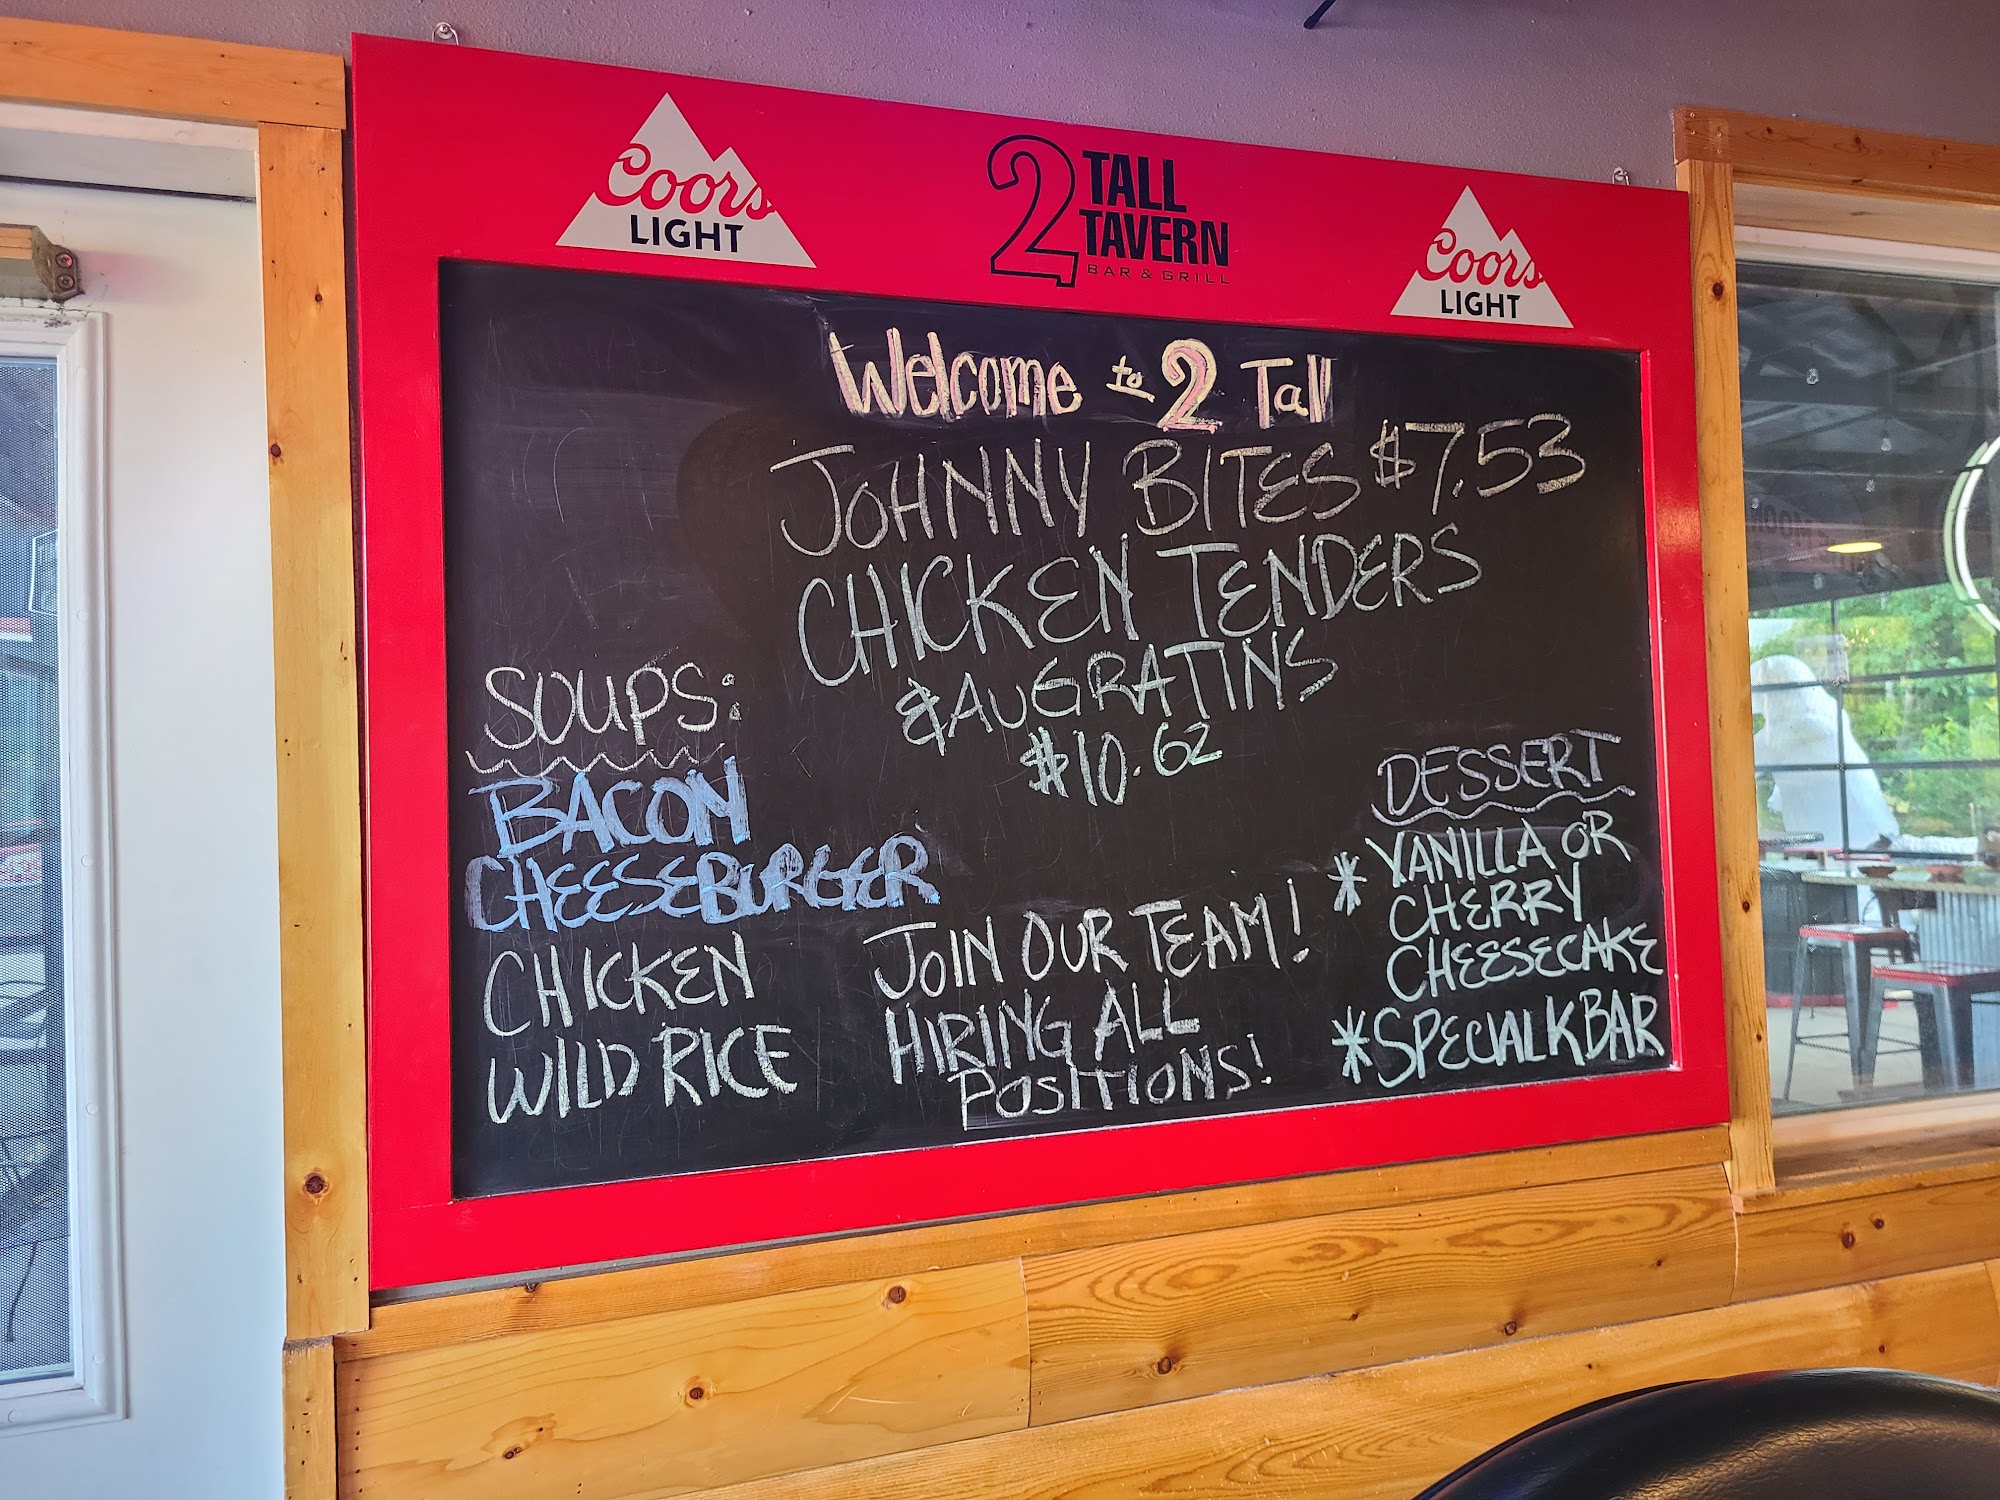 Coors
LIGHT
2 TALL
TAVERN
BAR & GRILL
Coors
LIGHT
Welcome to 2 Tall
JOHNNY BITES $7.53
CHICKEN TENDERS
& AUGRATINS
$10.62
SOUPS:
BACON
CHEESEBURGER
CHICKEN
WILD RICE
JOIN OUR TEAM!
HIRING ALL
POSITIONS!
DESSERT
* VANILLA OR
CHERRY
CHEESECAKE
* SPECIAL K BAR